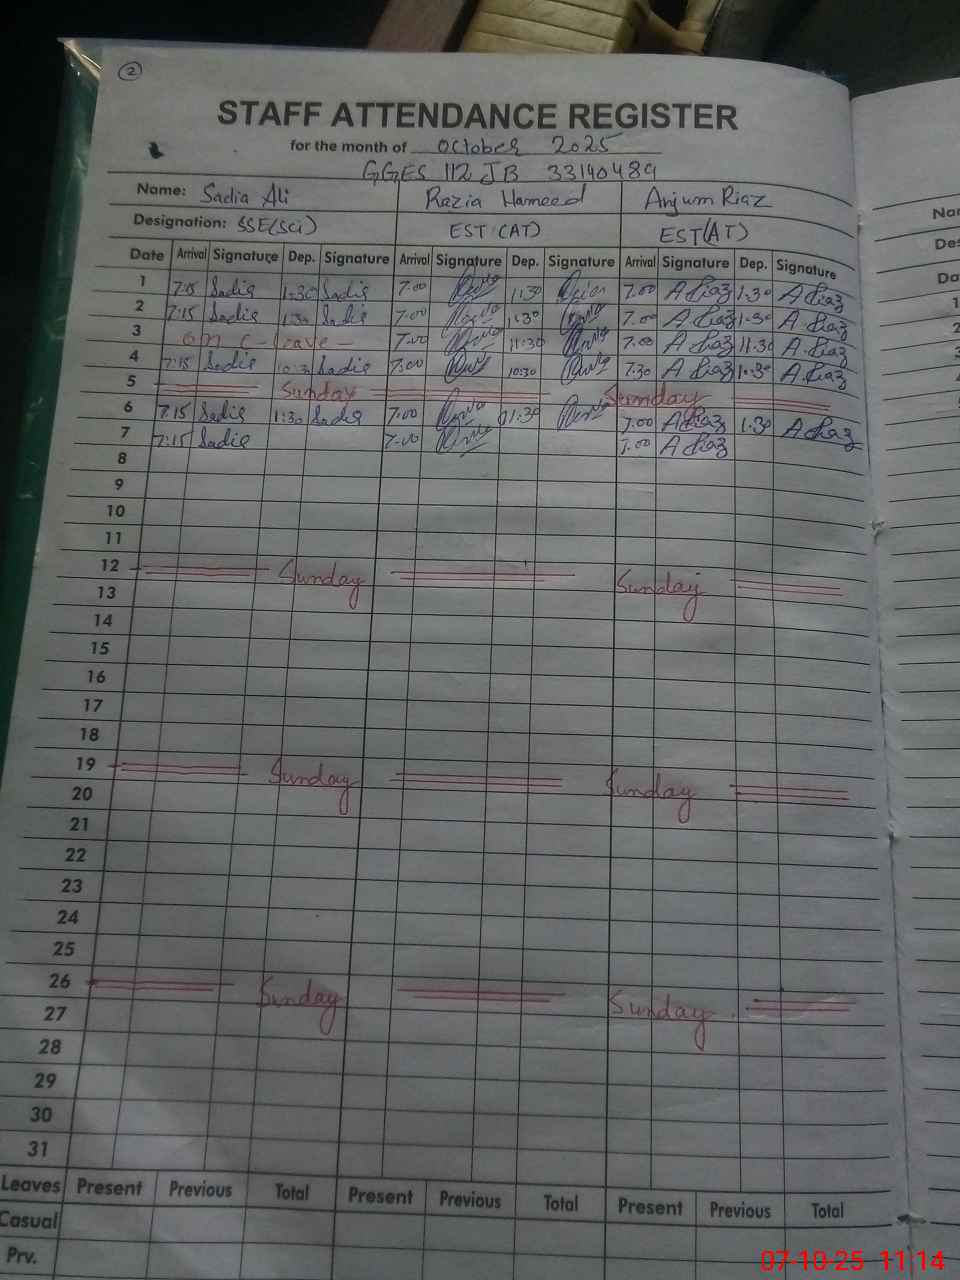 2
STAFF ATTENDANCE REGISTER
for the month of October 2025
GGES 112 JB 33140489
Name: Sadia Ali Razia Hameed Anjum Riaz
Designation: SSE(Sci) EST (AT) EST(AT)
Date Arrival Signature Dep. Signature Arrival Signature Dep. Signature Arrival Signature Dep. Signature
1 7:15 Sadia 1:30 Sadia 7.00 11:30 7.00 A Riaz 1.30 A Riaz
2 7:15 Sadia 1:30 Sadia 7.00 1:30 7.00 A Riaz 1.30 A Riaz
3 on C-leave - 7.00 11:30 7.00 A Riaz 11.30 A Riaz
4 7:15 Sadia 10:30 Sadia 7.00 10:30 7.30 A Riaz 10.30 A.Riaz
5 Sunday Sunday
6 7.15 Sadia 1:30 Sadia 7.00 01:30 7.00 A Riaz 1.30 A Riaz
7 7:15 Sadia 7.00 7.00 A Riaz
8
9
10
11
12 Sunday Sunday
13
14
15
16
17
18
19 Sunday Sunday
20
21
22
23
24
25
26 Sunday Sunday
27
28
29
30
31
Leaves Present Previous Total Present Previous Total Present Previous Total
Casual
Prv.
07-10-25 11:14
Nar
Des
Da
1
2
3